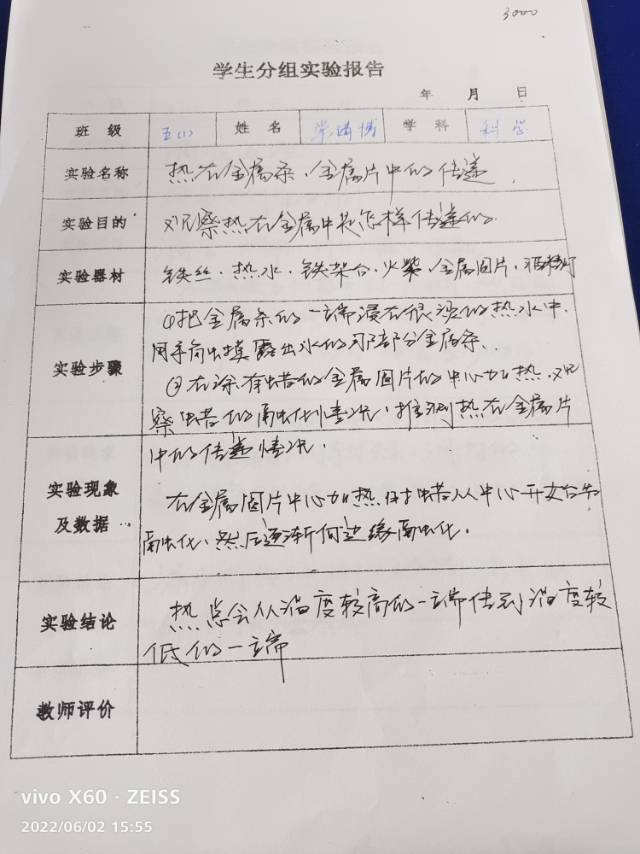 3000
学生分组实验报告
年 月 日
班 级 五(1) 姓 名 学 科 科学
实验名称 热在金属条、金属片中的传递.
实验目的 观察热在金属中是怎样传递的.
实验器材 铁丝、热水、铁架台、火柴、金属圆片、酒精灯
①把金属条的一端浸在很烫的热水中,
用手向触摸露出水的那部分金属条.
实验步骤 ②在涂有蜡的金属圆片的中心加热.观
察蜡的融化情况,推测热在金属片
中的传递情况.
实验现象 在金属圆片中心加热时蜡从中心开始
及数据 融化,然后逐渐向边缘融化.
实验结论 热总会从温度较高的一端传到温度较
低的一端
教师评价
vivo X60 · ZEISS
2022/06/02 15:55